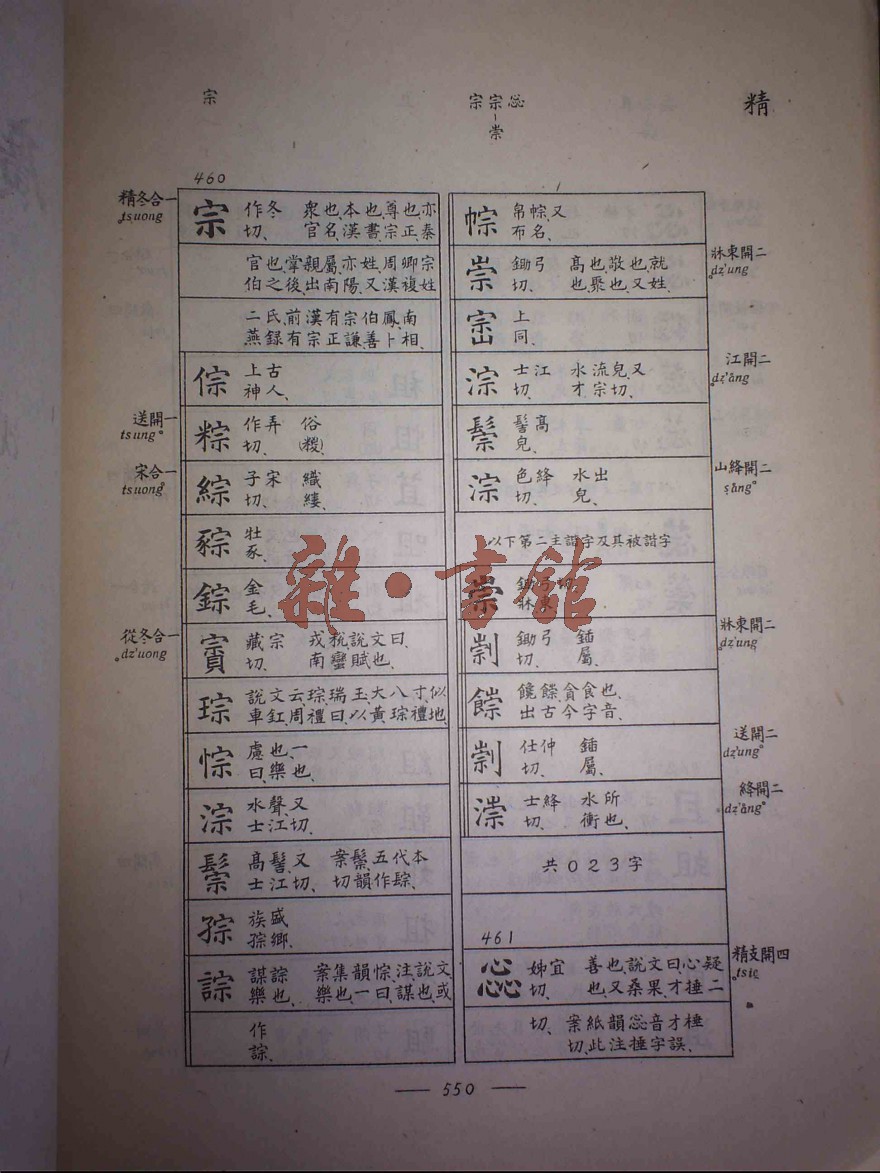 精
惢
宗
宗-崇
宗
460
精冬合一
꜀tsuong
宗 作冬切、 衆也、本也、尊也、亦官名、漢書宗正、秦
官也、掌親屬、亦姓、周卿宗伯之後、出南陽、又漢複姓
二氏、前漢有宗伯鳳、南燕録有宗正謙、善卜相、
倧 上古神人、
送開一
tsung°
粽 作弄切、 俗(糉)
宋合一
tsuong°
綜 子宋切、 織縷、
豵 牡豕、
錝 金毛、
從冬合一
꜀dz'uong
賨 藏宗切、 戎稅、說文曰、南蠻賦也、
琮 說文云、琮、瑞玉、大八寸、似車釭、周禮曰、以黃琮禮地、
悰 慮也、一曰、樂也、
淙 水聲、又士江切、
鬃 高髻、又士江切、 案鬃、五代本切韻作騌、
孮 族盛孮鄉、
誴 謀誴樂也、 案集韻悰、注、說文、樂也、一曰、謀也、或
作誴、
㡔 帛㡔又布名、
牀東開二
꜀dẓ'ung
崇 鋤弓切、 高也、敬也、就也、聚也、又姓、
崈 上同、
江開二
꜀dẓ'ång
淙 士江切、 水流皃、又才宗切、
鬃 髻高皃、
山絳開二
ṣång°
淙 色絳切、 水出皃、
以下第二主諧字及其被諧字
崇 鋤弓切、牀東
牀東開二
꜀dẓ'ung
剬 鋤弓切、 鍤屬、
饓 饒饓貪食也、出古今字音、
送開二
dẓ'ung°
仕仲切、 鍤屬、
絳開二
dẓ'ång°
漴 士絳切、 水所衝也、
共023字
461
精支開四
꜀tsie̯
惢 姊宜切、 善也、說文曰心疑也、又桑果、才捶二
切、 案紙韻惢音才棰切、此注捶字誤、
550
雜·書館